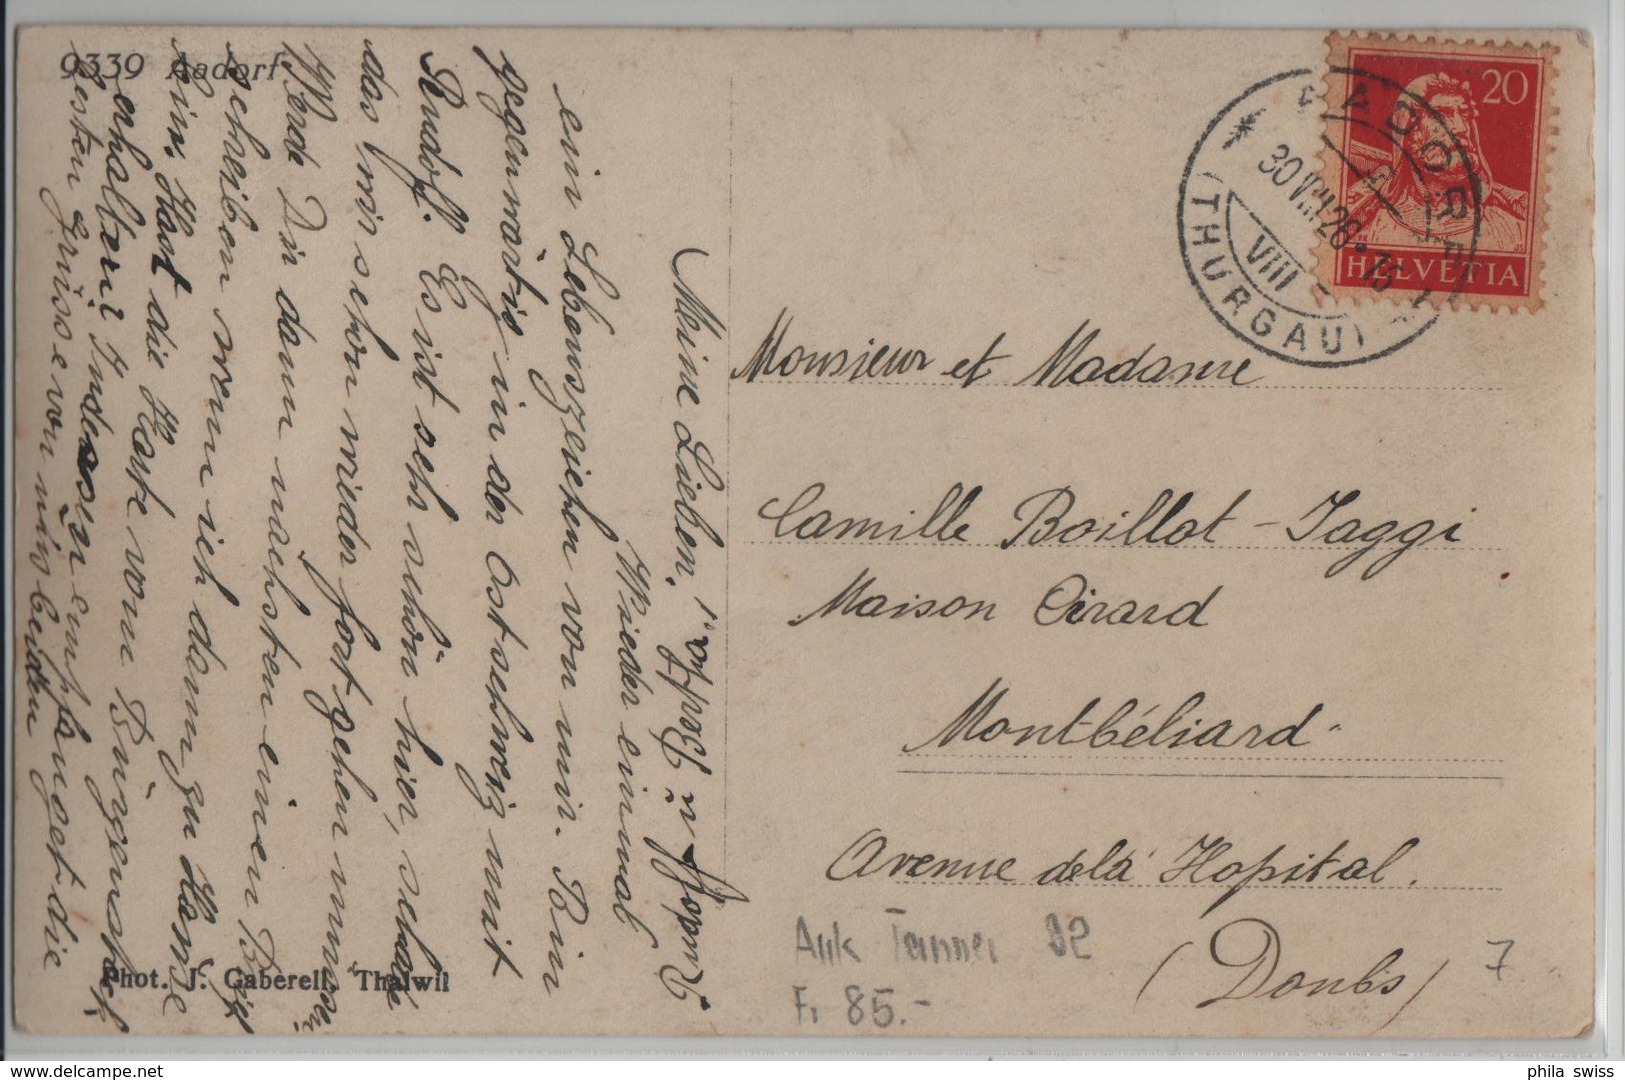 9339 Aadorf
Meine Lieben!
Wieder einmal
ein Lebenszeichen von mir. Bin
gegenwärtig in der Ostschweiz mit
Rudolf. Es ist sehr schön hier, schade
das mir schon wieder fort gehen müssen
Werde Dir dann nächsten einen Brief
schreiben wenn ich dann zu Hause
bin. Hast die Karte vom Bürgenstock
erhalten? Indessen empfanget die
besten Grüsse von mir beiden
Rudolf u. Bertha.
Phot. J. Gaberell, Thalwil
20
HELVETIA
AADORF
30 VIII 28
VIII
(THURGAU)
Monsieur et Madame
Camille Boillot-Jaggi
Maison Girard
Montbéliard
Avenue de la Hopital.
(Doubs)
7
Tanner 92
Fr 85.-
phila swiss
www.delcampe.net